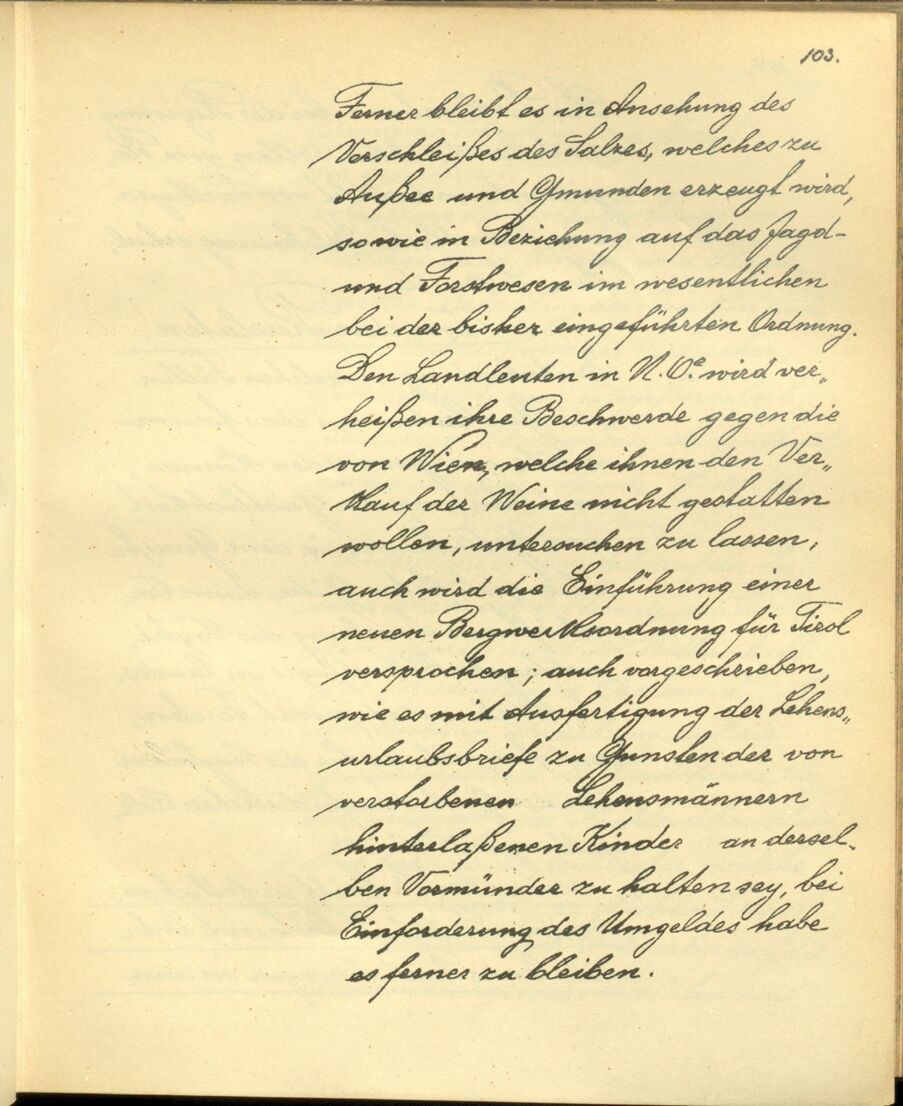 103.
Ferner bleibt es in Ansehung des
Verschleißes des Salzes, welches zu
Außee und Gmunden erzeugt wird,
sowie in Beziehung auf das Jagd-
und Forstwesen im wesentlichen
bei der bisher eingeführten Ordnung.
Den Landleuten in N. Oe. wird ver„
heißen ihre Beschwerde gegen die
von Wien, welche ihnen den Ver„
kauf der Weine nicht gestatten
wollen, untersuchen zu lassen,
auch wird die Einführung einer
neuen Bergwerksordnung für Tirol
versprochen; auch vorgeschrieben,
wie es mit Ausfertigung der Lehens„
urlaubsbriefe zu Gunsten der von
verstorbenen Lehensmännern
hinterlaßenen Kinder an dersel-
ben Vormünder zu halten sey, bei
Einforderung des Umgeldes habe
es ferner zu bleiben.